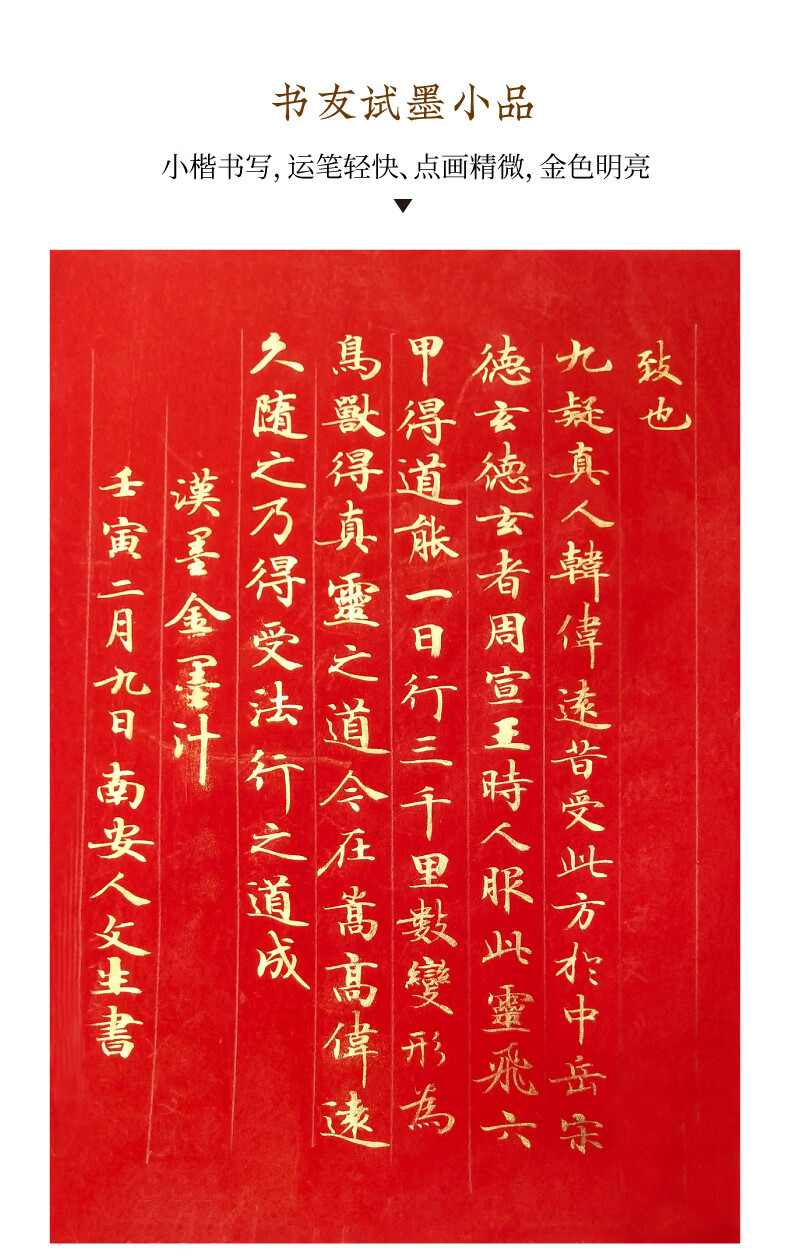 书友试墨小品
小楷书写, 运笔轻快、点画精微, 金色明亮
致也
九疑真人韓偉遠昔受此方於中岳宋
德玄德玄者周宣王時人服此靈飛六
甲得道能一日行三千里數變形為
鳥獸得真靈之道今在嵩高偉遠
久隨之乃得受法行之道成
漢墨金墨汁
壬寅二月九日南安人文生書